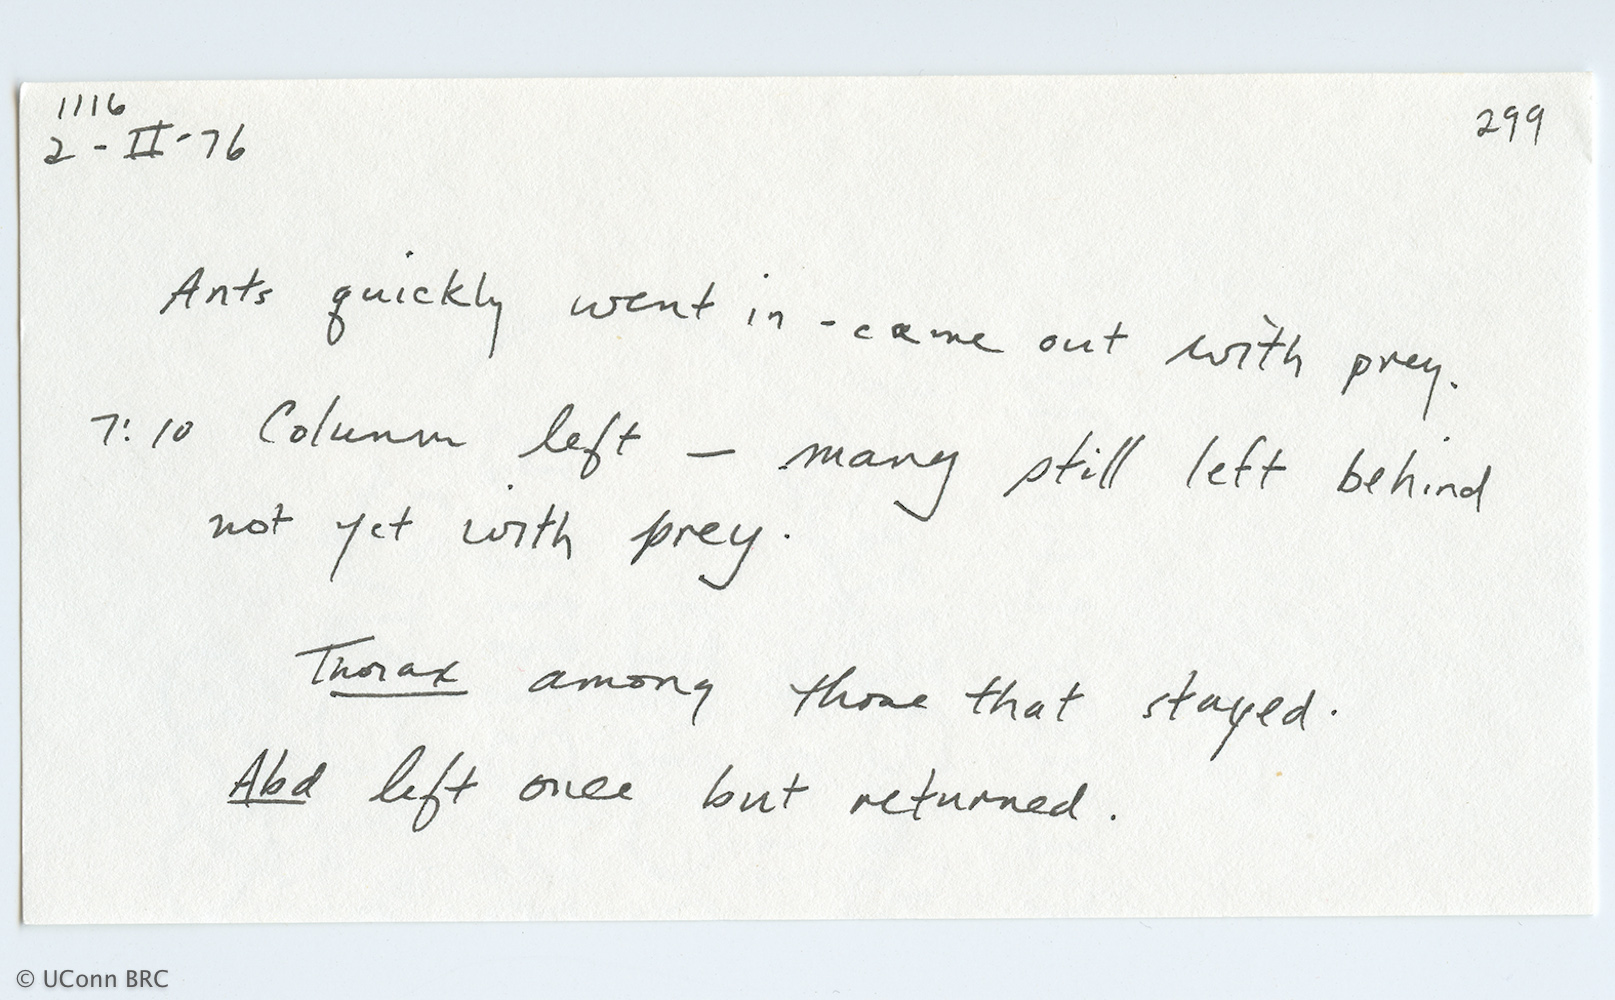 1116
2-II-76
299
Ants quickly went in - came out with prey.
7:10 Column left — many still left behind
not yet with prey.
Thorax among those that stayed.
Abd left once but returned.
© UConn BRC